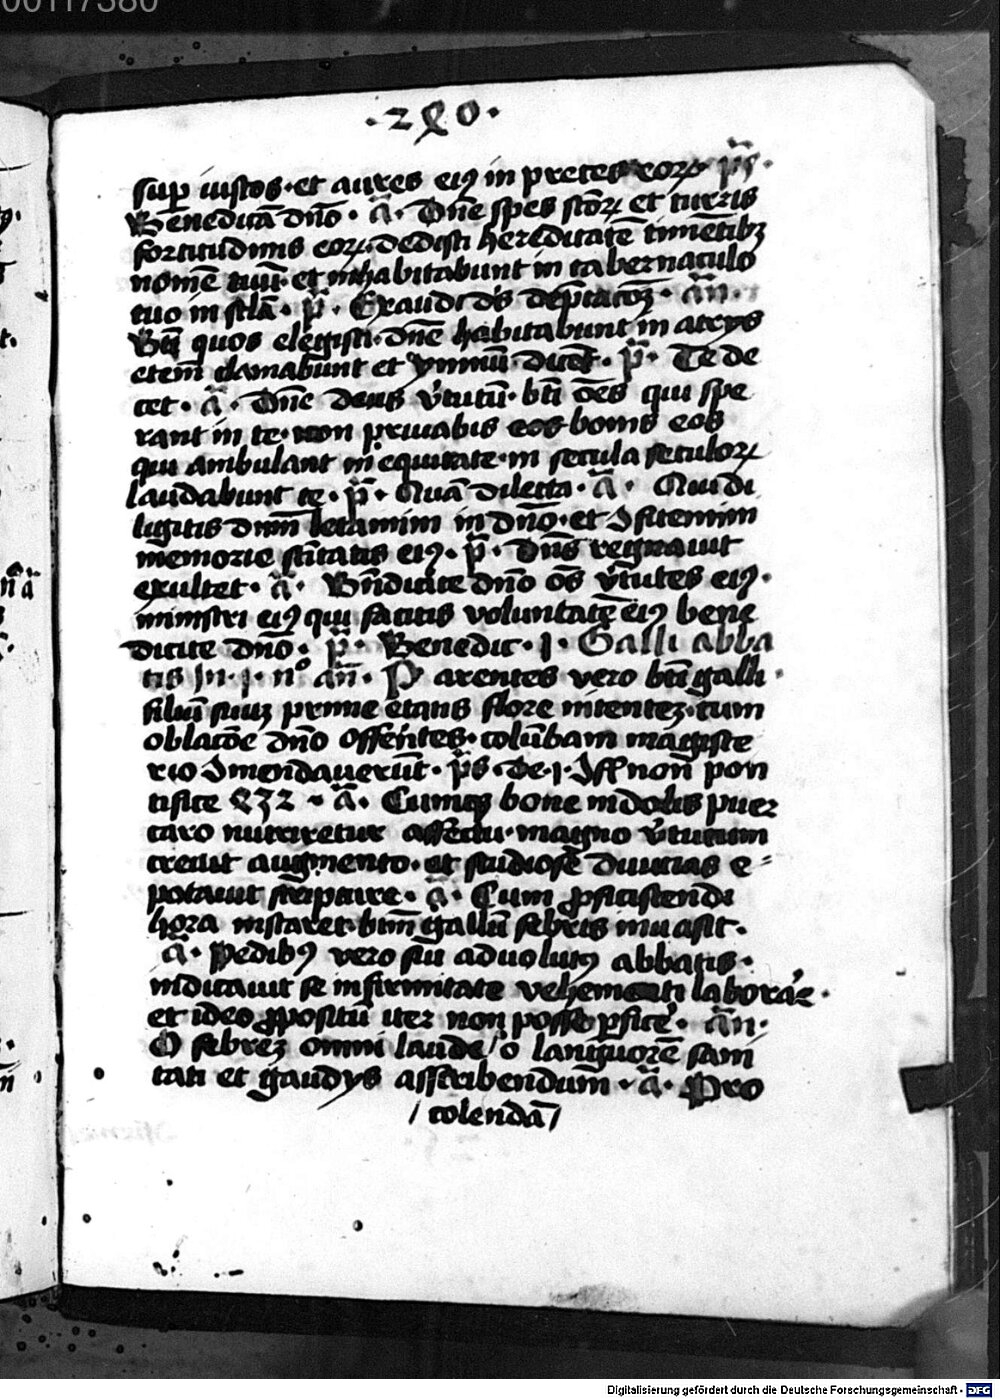 00117380
·2ꝭ0·
sup iustos · et aures eiꝯ in preces eoꝝ · p̃s ·
Benedicā dño · ã · Dñe spes sc̄oꝝ et turris
fortitudinis eoꝝ · dedisti hereditatē timētibꝫ
nomē tuū · et inhabitabunt in tabernaculo
tuo in sc̄lā · p̃ · Exaudi ds dep̄cacōꝫ · ãn ·
Bt̄i quos elegisti · dñe habitabunt in atrys
etem clamabunt et ymnuū dicēt · p̃ · Te de
cet · ã · Dñe deus v̓tutū · bt̄i oēs qui spe
rant in te · non priuabis eos bonis eos
qui ambulant in equitate · in secula seculoꝝ
laudabunt te · p̃ · Quā dilecta · ã · Qui di
ligitis dn̄m letamini in dño · et ꝯfitemini
memorie sc̄itatis eiꝯ · p̃ · Dñs regnauit
exultet · ã · Bn̄dicite dño oēs v̓tutes eiꝯ ·
ministri eiꝯ qui facitis voluntatē eiꝯ bene
dicite dño · p̃ · Benedic · j · Galli abba
tis Jn · j · n° ãn · Parentes vero bt̄i galli ·
filiū suuꝫ prime etatis flore nitenteꝫ · cum
oblacōe dño offerētes · colūbani magiste
rio ꝯmendauerūt · p̃s · de · j · ꝯff non̄ pon
tifice ꝭ32 · ã · Cumqꝫ bone indolis puer
caro nutriretur affectu · magno v̓tutum
creuit augmento · et studiose diuicias e
potauit sc̄ripture · ã · Cum ꝓficiscendi
hora instaret · bt̄m gallū febris inuasit ·
ã · Pedibꝯ vero sui aduolutꝯ abbatis ·
indicauit se infirmitate vehementi laborare ·
et ideo ꝓpositū iter non posse ꝑficē · ãn ·
O febreꝫ omni laude / o languorē sani
tati et gaudys asscribendum · ã · Pro
/ colendā /
Digitalisierung gefördert durch die Deutsche Forschungsgemeinschaft · DFG